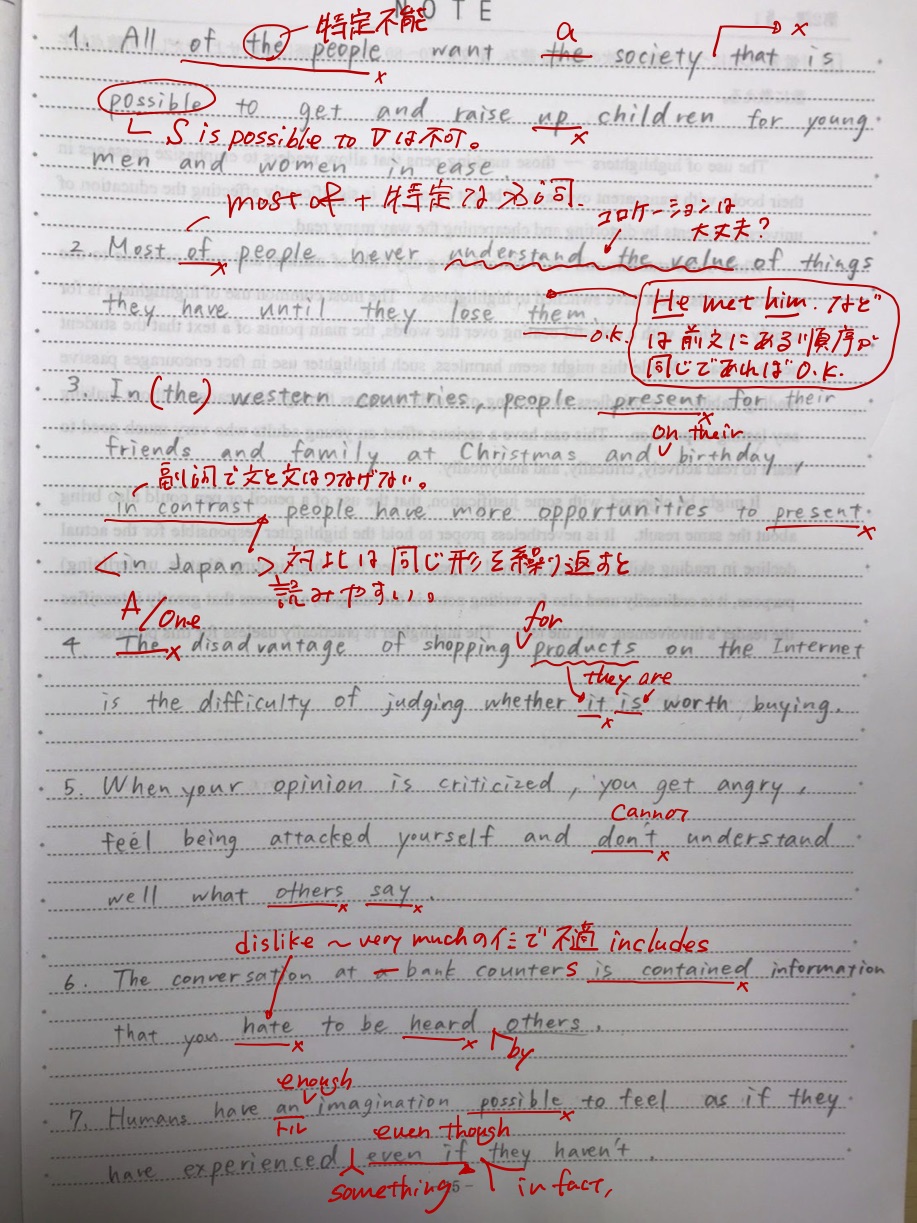 NOTE
特定不能 a x
1. All of the people want the society that is
x
possible to get and raise up children for young
x
S is possible to Vは不可。
men and women in ease.
most of + 特定は名詞. コロケーションは
大丈夫?
2 Most of people never understand the value of things
x
they have until they lose them.
O.K.
He met him. などは
は前文にある順序が
同じであればO.K.
3. In (the) western countries, people present for their
x
on their
friends and family at Christmas and birthday,
副詞で文と文はつなげない。
in contrast, people have more opportunities to present
x
<in Japan> 対比は同じ形を繰り返すと
読みやすい。
A/One for
4. The disadvantage of shopping products on the Internet
x
they are
is the difficulty of judging whether it is worth buying.
x
5. When your opinion is criticized, you get angry,
cannot
feel being attacked yourself and don't understand
x
well what others say.
x x
dislike ~ very muchの仕で不適 includes
6. The conversation at a bank counters is contained information
x
that you hate to be heard others.
x x by
enough
7. Humans have an imagination possible to feel as if they
トル x
even though
have experienced even if they haven't.
something in fact,